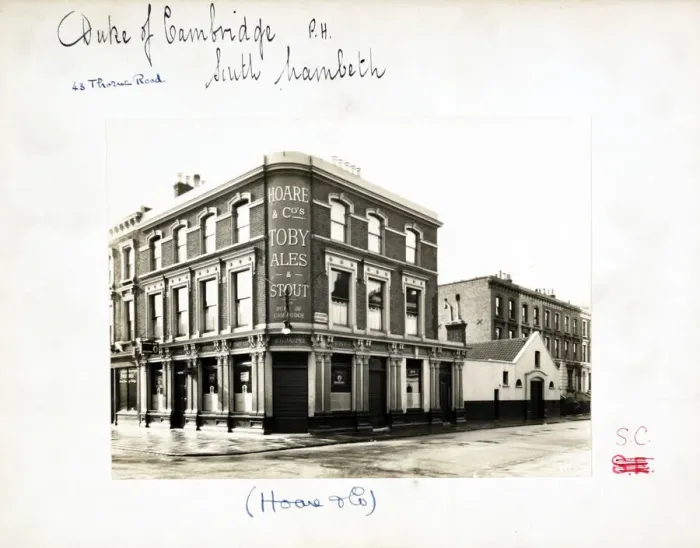 Duke of Cambridge P.H.
South Lambeth
43 Thorne Road.
HOARE
& Co's
TOBY
ALES
&
STOUT
DUKE OF
CAMBRIDGE
S.C.
(Hoare & Co)